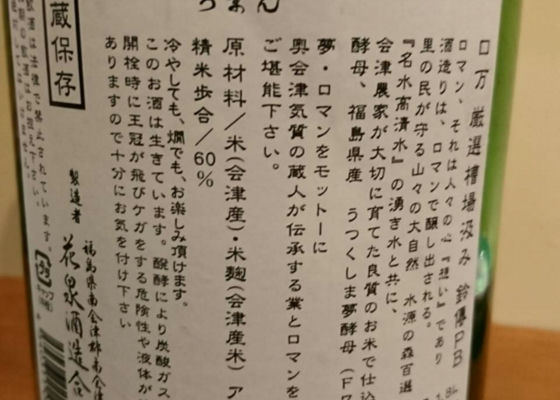 ロ万 厳選槽場汲み 鈴傳PB
ロマン、それは人々の心『想い』であり
酒造りは、ロマンで醸し出される。
里の民が守る山々の大自然 水源の森百選
『名水高清水』の湧き水と共に、
会津農家が大切に育てた良質のお米で仕込
酵母、福島県産 うつくしま夢酵母(F7
夢・ロマンをモットーに
奥会津気質の蔵人が伝承する業とロマンを
ご堪能下さい。
原材料/米(会津産)・米麹(会津産米)ア
精米歩合/60%
冷やしても、燗でも、お楽しみ頂けます。
このお酒は生きています。醗酵により炭酸ガス
開栓時に王冠が飛びケガをする危険性や液体が
ありますので十分にお気を付け下さい
製造者
福島県南会津郡南会津
花泉酒造合
蔵保存
飲酒は法律で禁止されています。